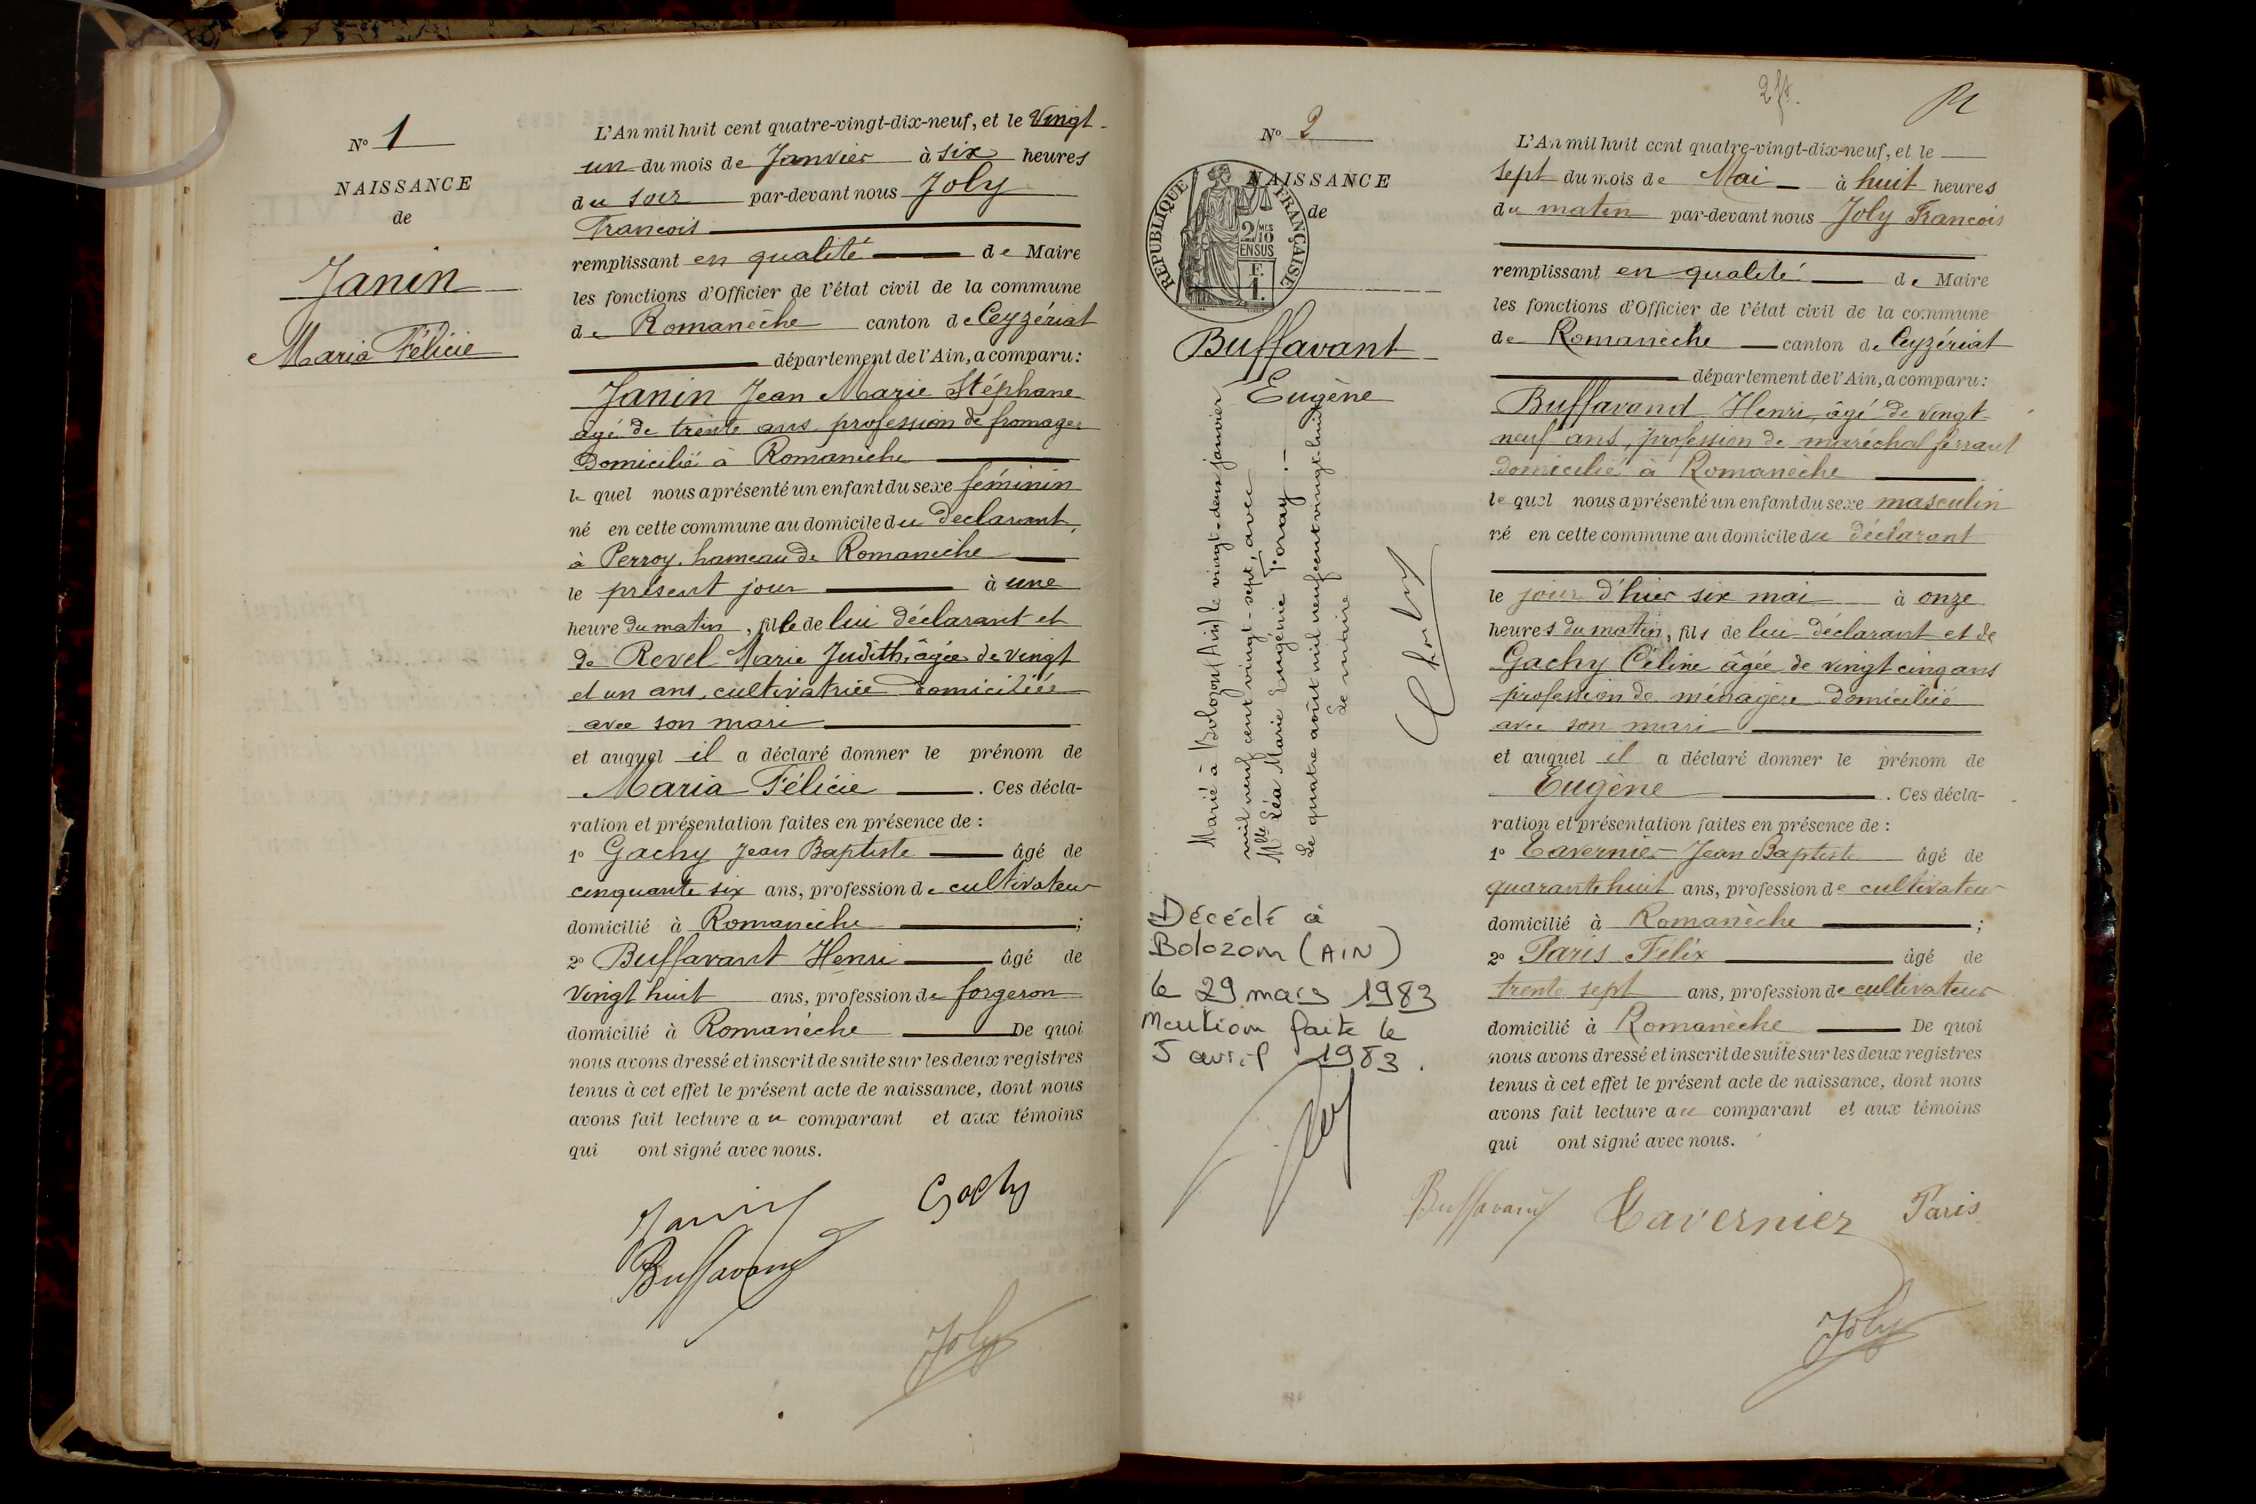 N° 1
NAISSANCE
de
Janin
Maria Félicie
L'An mil huit cent quatre-vingt-dix-neuf, et le Vingt-
un du mois de Janvier à six heures
du soir par-devant nous Joly
François
remplissant en qualité de Maire
les fonctions d'Officier de l'état civil de la commune
de Romanèche canton de Ceyzériat
département de l'Ain, a comparu:
Janin Jean Marie Stéphane
agé de trente ans profession de fromager
Domicilié à Romanèche
le quel nous a présenté un enfant du sexe féminin
né en cette commune au domicile du Declarant,
à Perroy, hameau de Romanèche
le présent jour à une
heure du matin, fille de lui déclarant et
de Revel Marie Judith, âgée de vingt
et un ans, cultivatrice domiciliée
avec son mari
et auquel il a déclaré donner le prénom de
Maria Félicie. Ces décla-
ration et présentation faites en présence de :
1° Gachy Jean Baptiste âgé de
cinquante six ans, profession de cultivateur
domicilié à Romanèche ;
2° Buffavant Henri âgé de
Vingt huit ans, profession de forgeron
domicilié à Romanèche De quoi
nous avons dressé et inscrit de suite sur les deux registres
tenus à cet effet le présent acte de naissance, dont nous
avons fait lecture au comparant et aux témoins
qui ont signé avec nous.
Janin Gachy
Buffavand
Joly
2 ft.
N° 2
RÉPUBLIQUE FRANÇAISE
2/10 MES
EN SUS
F.
1.
NAISSANCE
de
Buffavant
Eugène
Marié à Bolozon (Ain) le vingt-deux janvier
mil neuf cent vingt-sept, avec
Mlle Léa Marie Eugénie Joray.-
Le quatre août mil neuf cent vingt-huit
Le maire
Décédé à
Bolozon (AIN)
le 29 mars 1983
Mention faite le
5 avril 1983.
L'An mil huit cent quatre-vingt-dix-neuf, et le
sept du mois de Mai à huit heures
du matin par-devant nous Joly Francois
remplissant en qualité de Maire
les fonctions d'Officier de l'état civil de la commune
de Romanèche canton de Ceyzériat
département de l'Ain, a comparu:
Buffavand Henri, âgé de vingt
neuf ans, profession de maréchal ferrant
domicilié à Romanèche
le quel nous a présenté un enfant du sexe masculin
né en cette commune au domicile du déclarant
le jour d'hier six mai à onze
heures du matin, fils de lui déclarant et de
Gachy Céline âgée de vingt cinq ans
profession de ménagère domiciliée
avec son mari
et auquel il a déclaré donner le prénom de
Eugène. Ces décla-
ration et présentation faites en présence de :
1° Tavernier Jean Baptiste âgé de
quarante huit ans, profession de cultivateur
domicilié à Romanèche ;
2° Paris Félix âgé de
trente sept ans, profession de cultivateur
domicilié à Romanèche De quoi
nous avons dressé et inscrit de suite sur les deux registres
tenus à cet effet le présent acte de naissance, dont nous
avons fait lecture au comparant et aux témoins
qui ont signé avec nous.
Buffavand Tavernier Paris
Joly